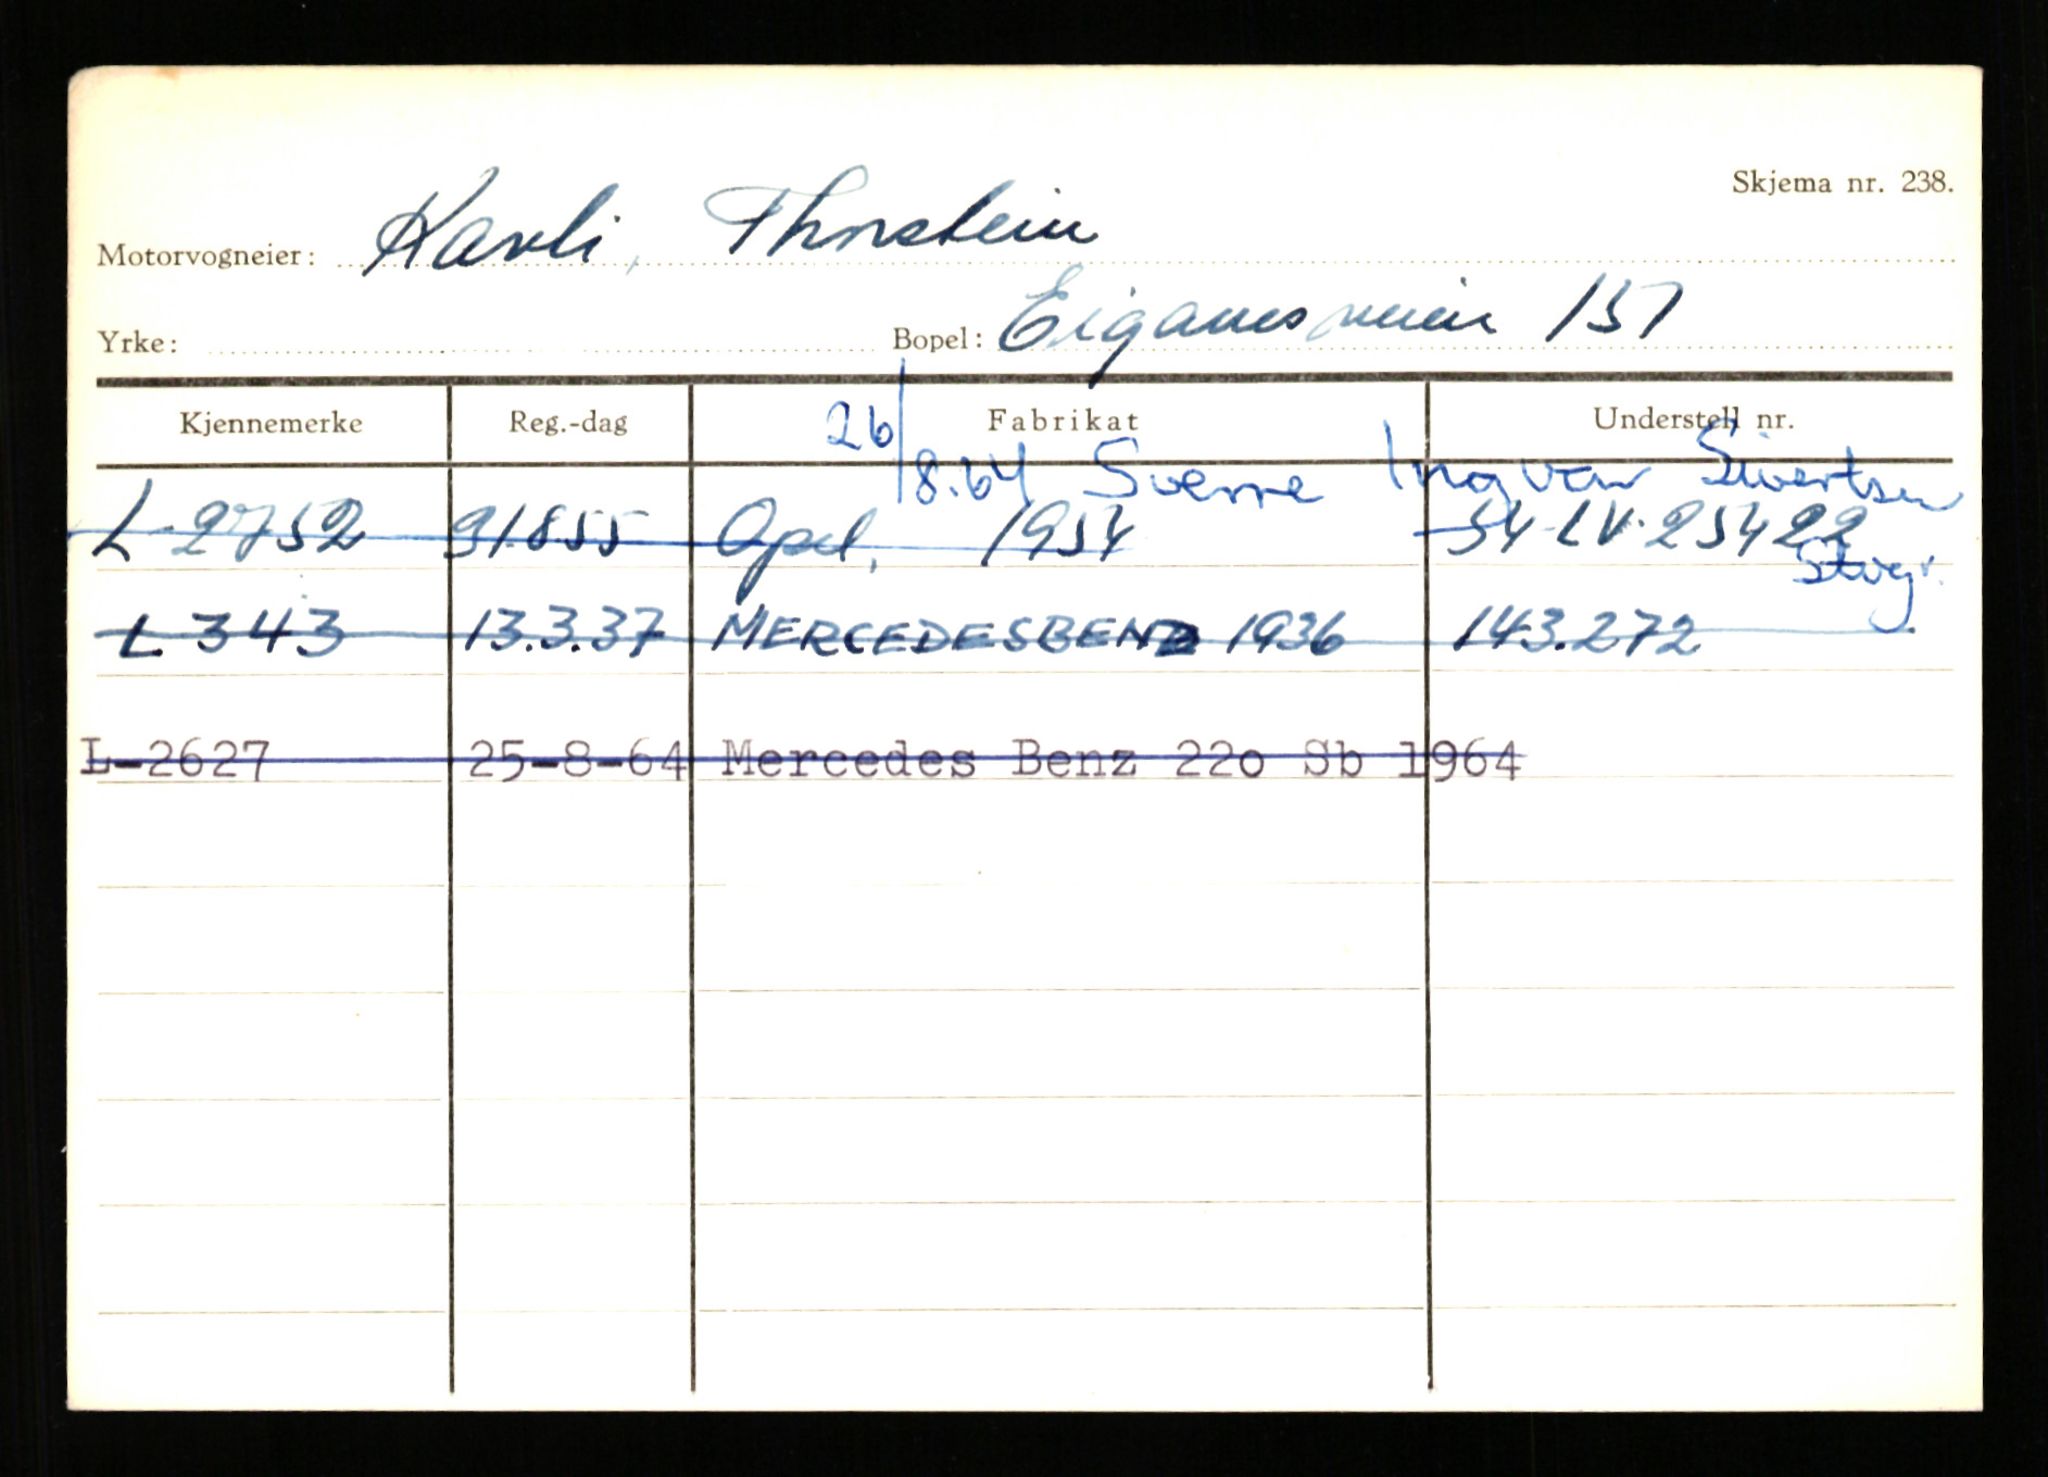 Skjema nr. 238.
Motorvogneier: Kavli, Thorstein
Yrke: Bopel: Eiganesveien 157
Kjennemerke Reg.-dag Fabrikat Understell nr.
26/8.64 Sverre Ingvar Sivertsen
Stvgr.
L-2752 31.8.55 Opel, 1954 54-LV-25422
L 343 13.3.37 MERCEDESBENZ 1936 143.272
L-2627 25-8-64 Mercedes Benz 22o Sb 1964